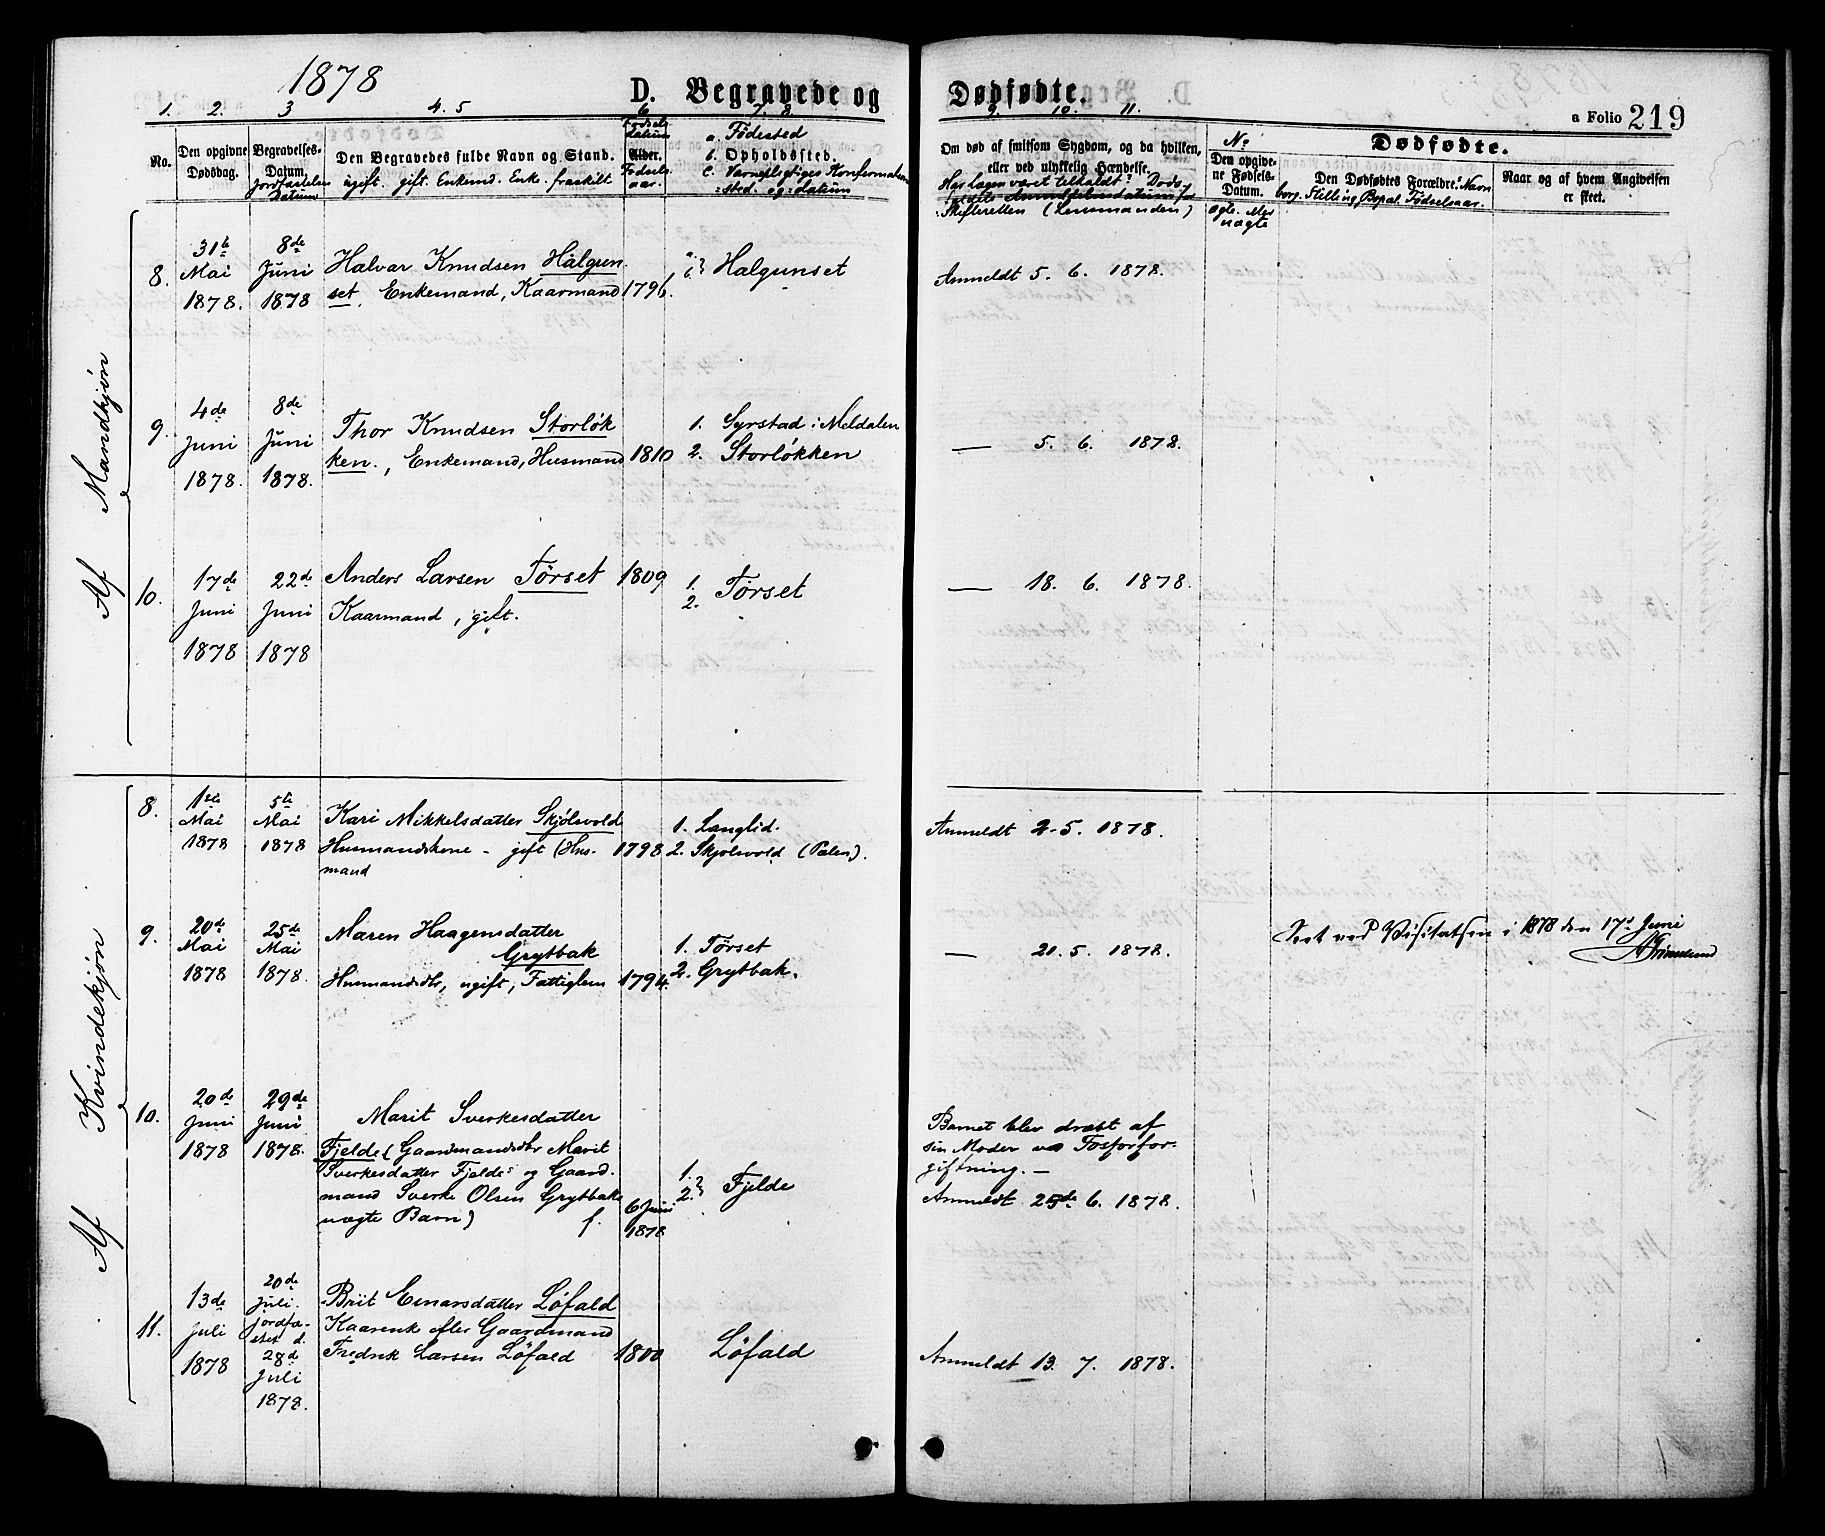 1878
D. Begravede og Dødfødte.
a Folio 219
1. 2. 3 4. 5 6 7. 8. 9. 10. 11.
No.
Den opgivne Dødsdag.
Begravelses-Datum.
Jordfæstelses Datum
Den Begravedes fulde Navn og Stand.
ugift. gift. Enkemd. Enke. fraskilt
Fødsels datum
Alder.
Fødselsaar.
a. Fødested
b. Opholdssted.
c. Værnepligtiges Konfirmations
sted og datum
Om død af smitsom Sygdom, og da hvilken,
eller ved ulykkelig Hændelse.
Har Lægen været tilkaldt? Døds-
Skifteretten (Lensmanden)
No
Den opgivne Fødsels-Datum.
ægte eller uægte
Dødfødte.
Den Dødfødtes Forældre: Navn
borg. Stilling, Bopæl. Fødselsaar.
Naar og af hvem Angivelsen
er skeet.
Af Mandkjøn
8.
31te Mai 1878.
8de Juni 1878
Halvar Knudsen Halgun
set, Enkemand, Kaarmand
1796.
Halgunset
Anmeldt 5. 6. 1878.
9.
4de Juni 1878.
8de Juni 1878.
Thor Knudsen Storløk
ken., Enkemand, Husmand
1810
1. Syrstad i Meldalen
2. Storløkken
— 5. 6. 1878.
10.
17de Juni 1878
22de Juni 1878
Anders Larsen Tørset
Kaarmand, gift.
1809
1.
2. Tørset
— 18. 6. 1878.
Af Kvindekjøn
8.
1ste Mai 1878
5te Mai 1878
Kari Mikkelsdatter Skjølsvold
Husmandskone - gift (Hus-
mand
1798
1. Langlid.
2. Skjølsvold (Pælen).
Anmeldt 2. 5. 1878.
9.
20de Mai 1878
25de Mai 1878.
Maren Haagensdatter
Grytbak
Husmandsdtr, ugift, Fattiglem
1794.
1. Tørset
2. Grytbak.
— 21. 5. 1878.
Seet ved Visitatsen i 1878 den 17d Juni
AGrimelund
10.
20de Juni 1878
29de Juni 1878.
Marit Sverkesdatter
Fjelde (Gaardmandsdtr Marit
Sverkesdatter Fjelde og Gaard-
mand Sverke Olsen Grytbak
uægte Barn) f.
6 Juni 1878
1.
2. Fjelde
Barnet blev dræbt af
sin Moder ved Fosforfor-
giftning. —
Anmeldt 25de 6. 1878.
11.
13de Juli 1878
20de Juli.
jordfæ-
stet d.
28d Juli
1878.
Brit Einarsdatter Løfald
Kaarenk efter Gaardmand
Fredrik Larsen Løfald
1800
Løfald
Anmeldt 13. 7. 1878.